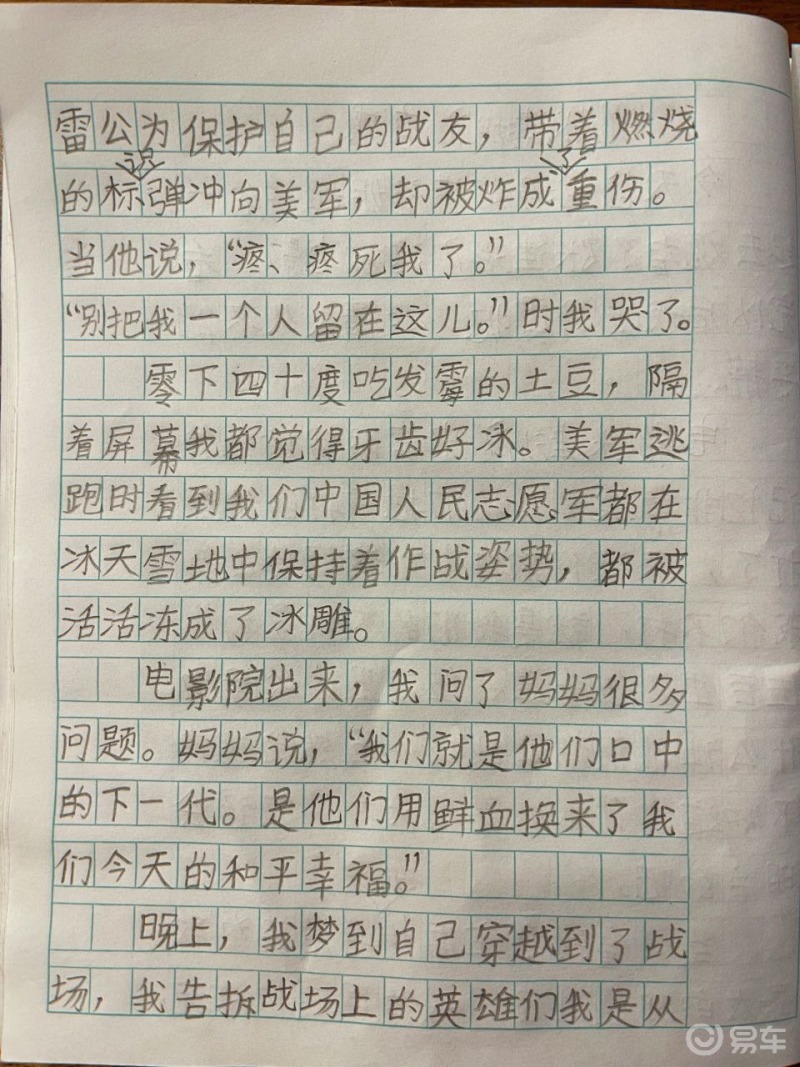 雷公为保护自己的战友，带着燃烧
的标识弹冲向美军，却被炸成了重伤。
当他说，“疼、疼死我了。”
“别把我一个人留在这儿。”时我哭了。
零下四十度吃发霉的土豆，隔
着屏幕我都觉得牙齿好冰。美军逃
跑时看到我们中国人民志愿军都在
冰天雪地中保持着作战姿势，都被
活活冻成了冰雕。
电影院出来，我问了妈妈很多
问题。妈妈说，“我们就是他们口中
的下一代。是他们用鲜血换来了我
们今天的和平幸福。”
晚上，我梦到自己穿越到了战
场，我告拆战场上的英雄们我是从
易车